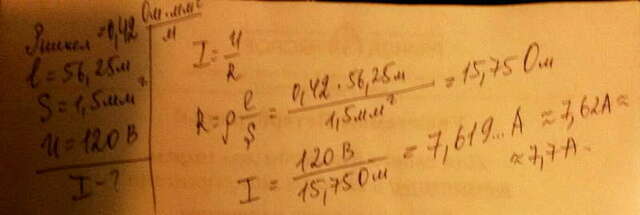 ρникел = 0,42 Ом·мм²/м
l = 56,25м
S = 1,5мм²
U = 120 В
I - ?
I = U/R
R = ρ l/S = 0,42 · 56,25м / 1,5мм² = 15,75 Ом
I = 120 В / 15,75 Ом = 7,619... А ≈ 7,62А ≈
≈ 7,7 А